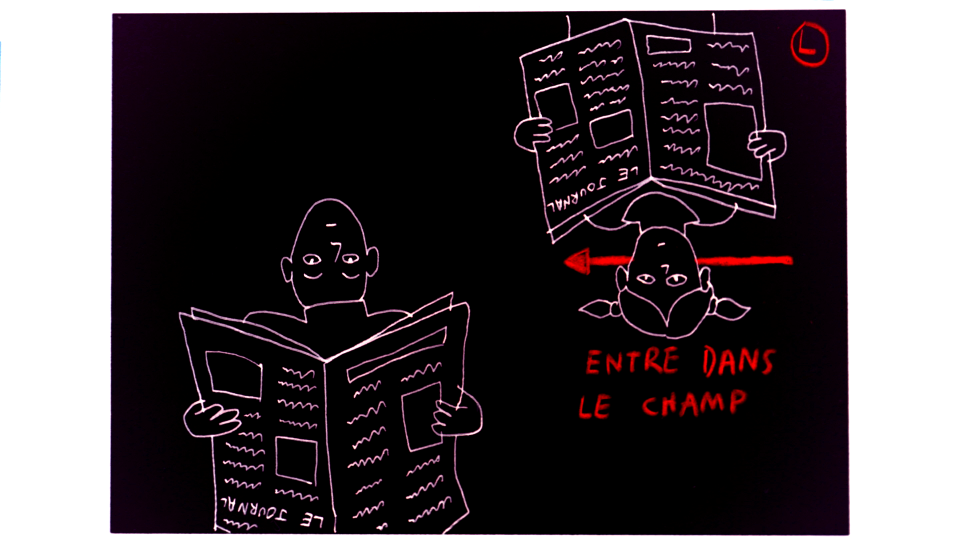 L
LE JOURNAL
ENTRE DANS
LE CHAMP
LE JOURNAL